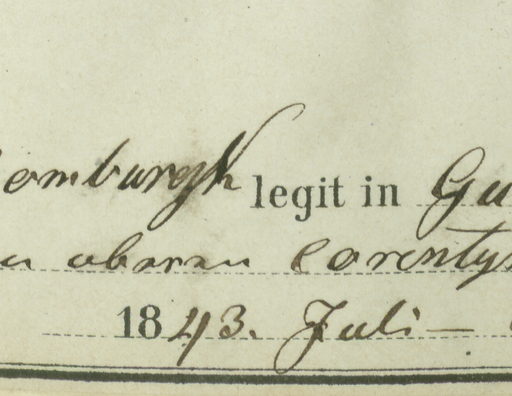 omburgk legit in Gu
n oberen Corenty
1843. Juli —